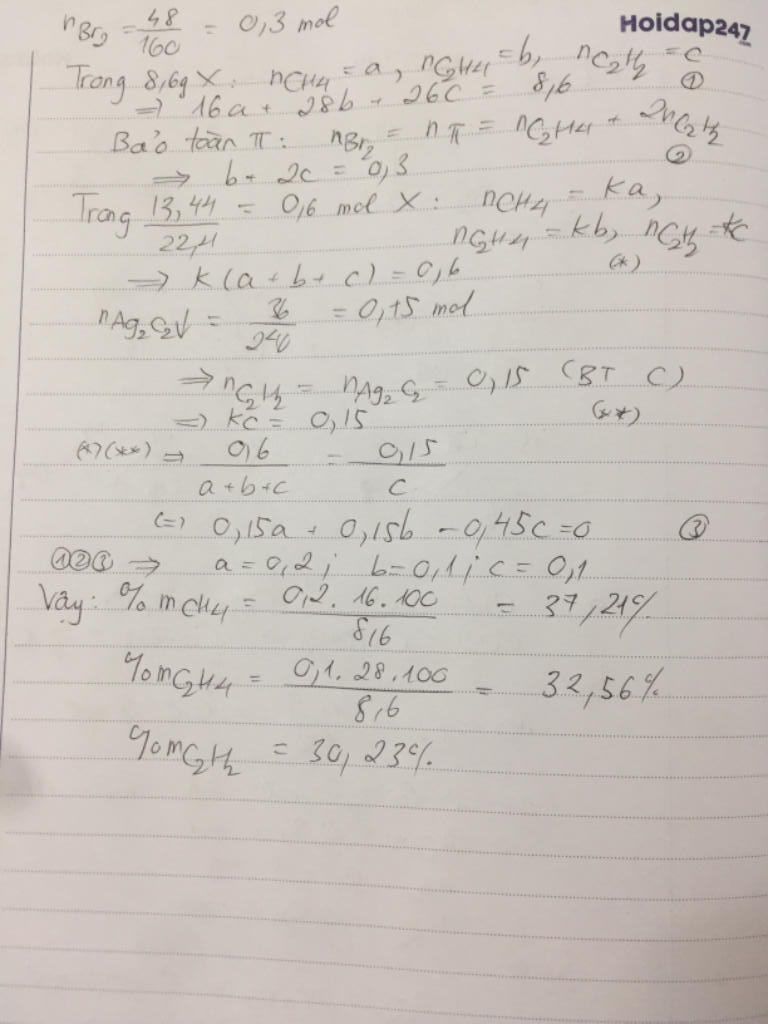 nBr2 = 48/160 = 0,3 mol
Hoidap247
Trong 8,6g X: nCH4 = a, nC2H4 = b, nC2H2 = c
=> 16a + 28b + 26c = 8,6 ①
Bảo toàn π: nBr2 = nπ = nC2H4 + 2nC2H2
=> b + 2c = 0,3 ②
Trong 13,44/22,4 = 0,6 mol X: nCH4 = ka,
nC2H4 = kb, nC2H2 = kc
=> k(a+b+c) = 0,6 (*)
nAg2C2↓ = 36/240 = 0,15 mol
=> nC2H2 = nAg2C2 = 0,15 (BT C)
=> kc = 0,15 (**)
(*)(**) => 0,6/(a+b+c) = 0,15/c
(=) 0,15a + 0,15b - 0,45c = 0 ③
①②③ => a = 0,2; b = 0,1; c = 0,1
Vậy: %mCH4 = 0,2.16.100/8,6 = 37,21%
%mC2H4 = 0,1.28.100/8,6 = 32,56%
%mC2H2 = 30,23%